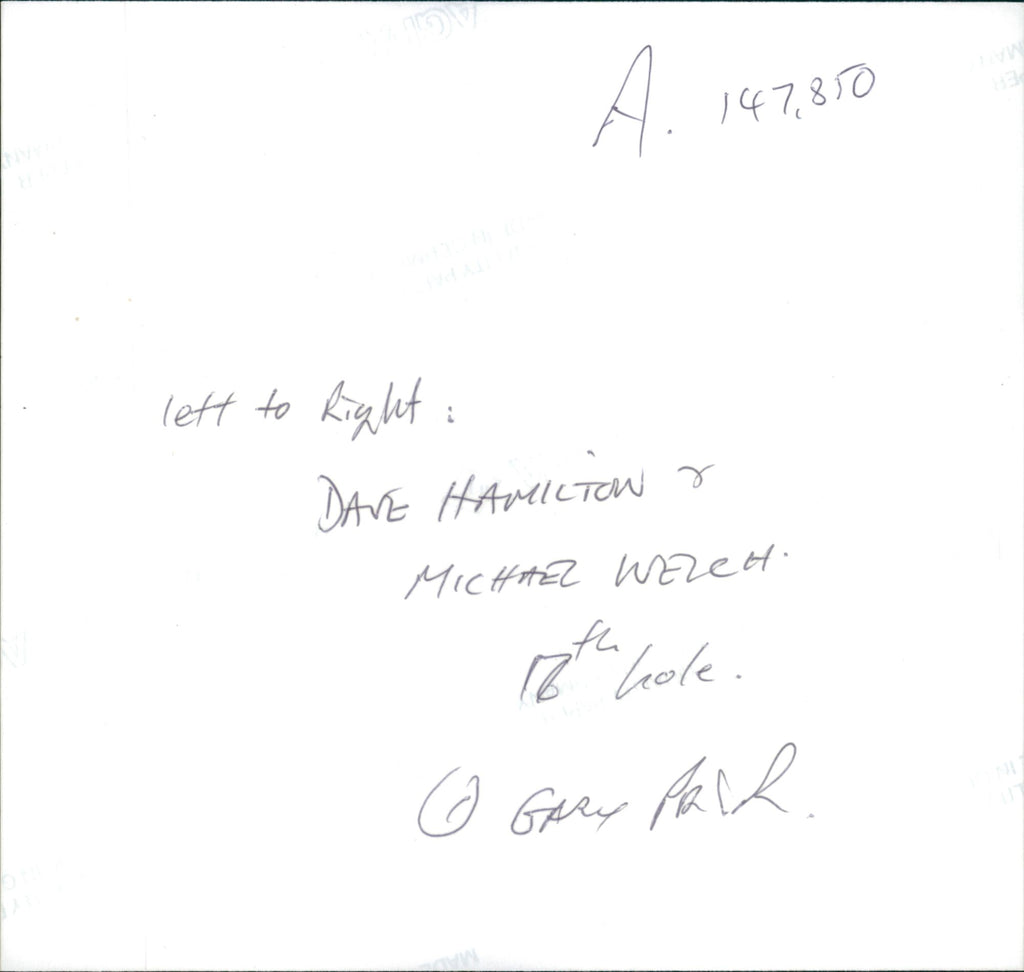 A. 147,850
left to Right :
DAVE HAMILTON &
MICHAEL WELCH.
18th hole.
© GARY